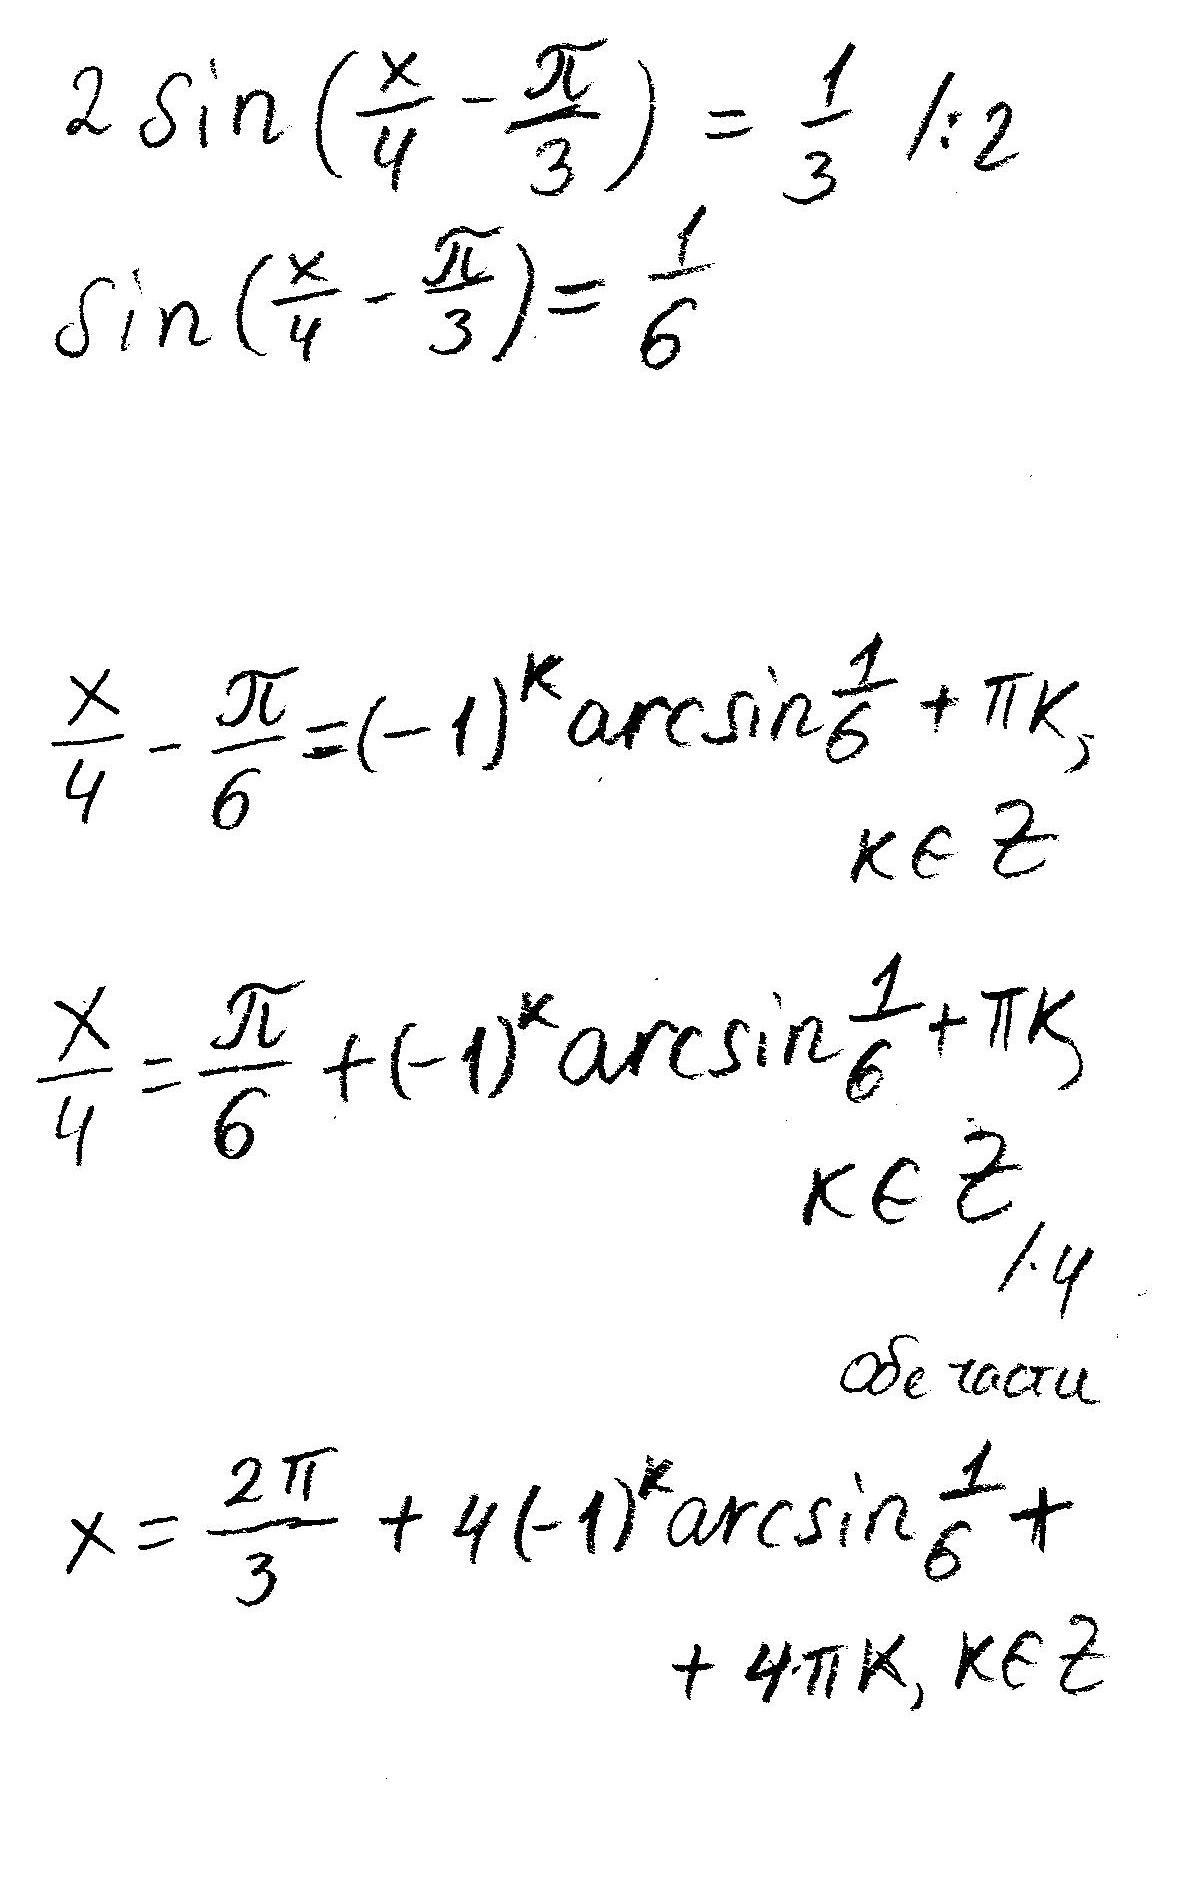 2 sin(x/4 - π/3) = 1/3 /:2
sin(x/4 - π/3) = 1/6
x/4 - π/6 = (-1)^k arcsin 1/6 + πk,
k ∈ Z
x/4 = π/6 + (-1)^k arcsin 1/6 + πk,
k ∈ Z
/·4
обе части
x = 2π/3 + 4(-1)^k arcsin 1/6 +
+ 4·πk, k ∈ Z